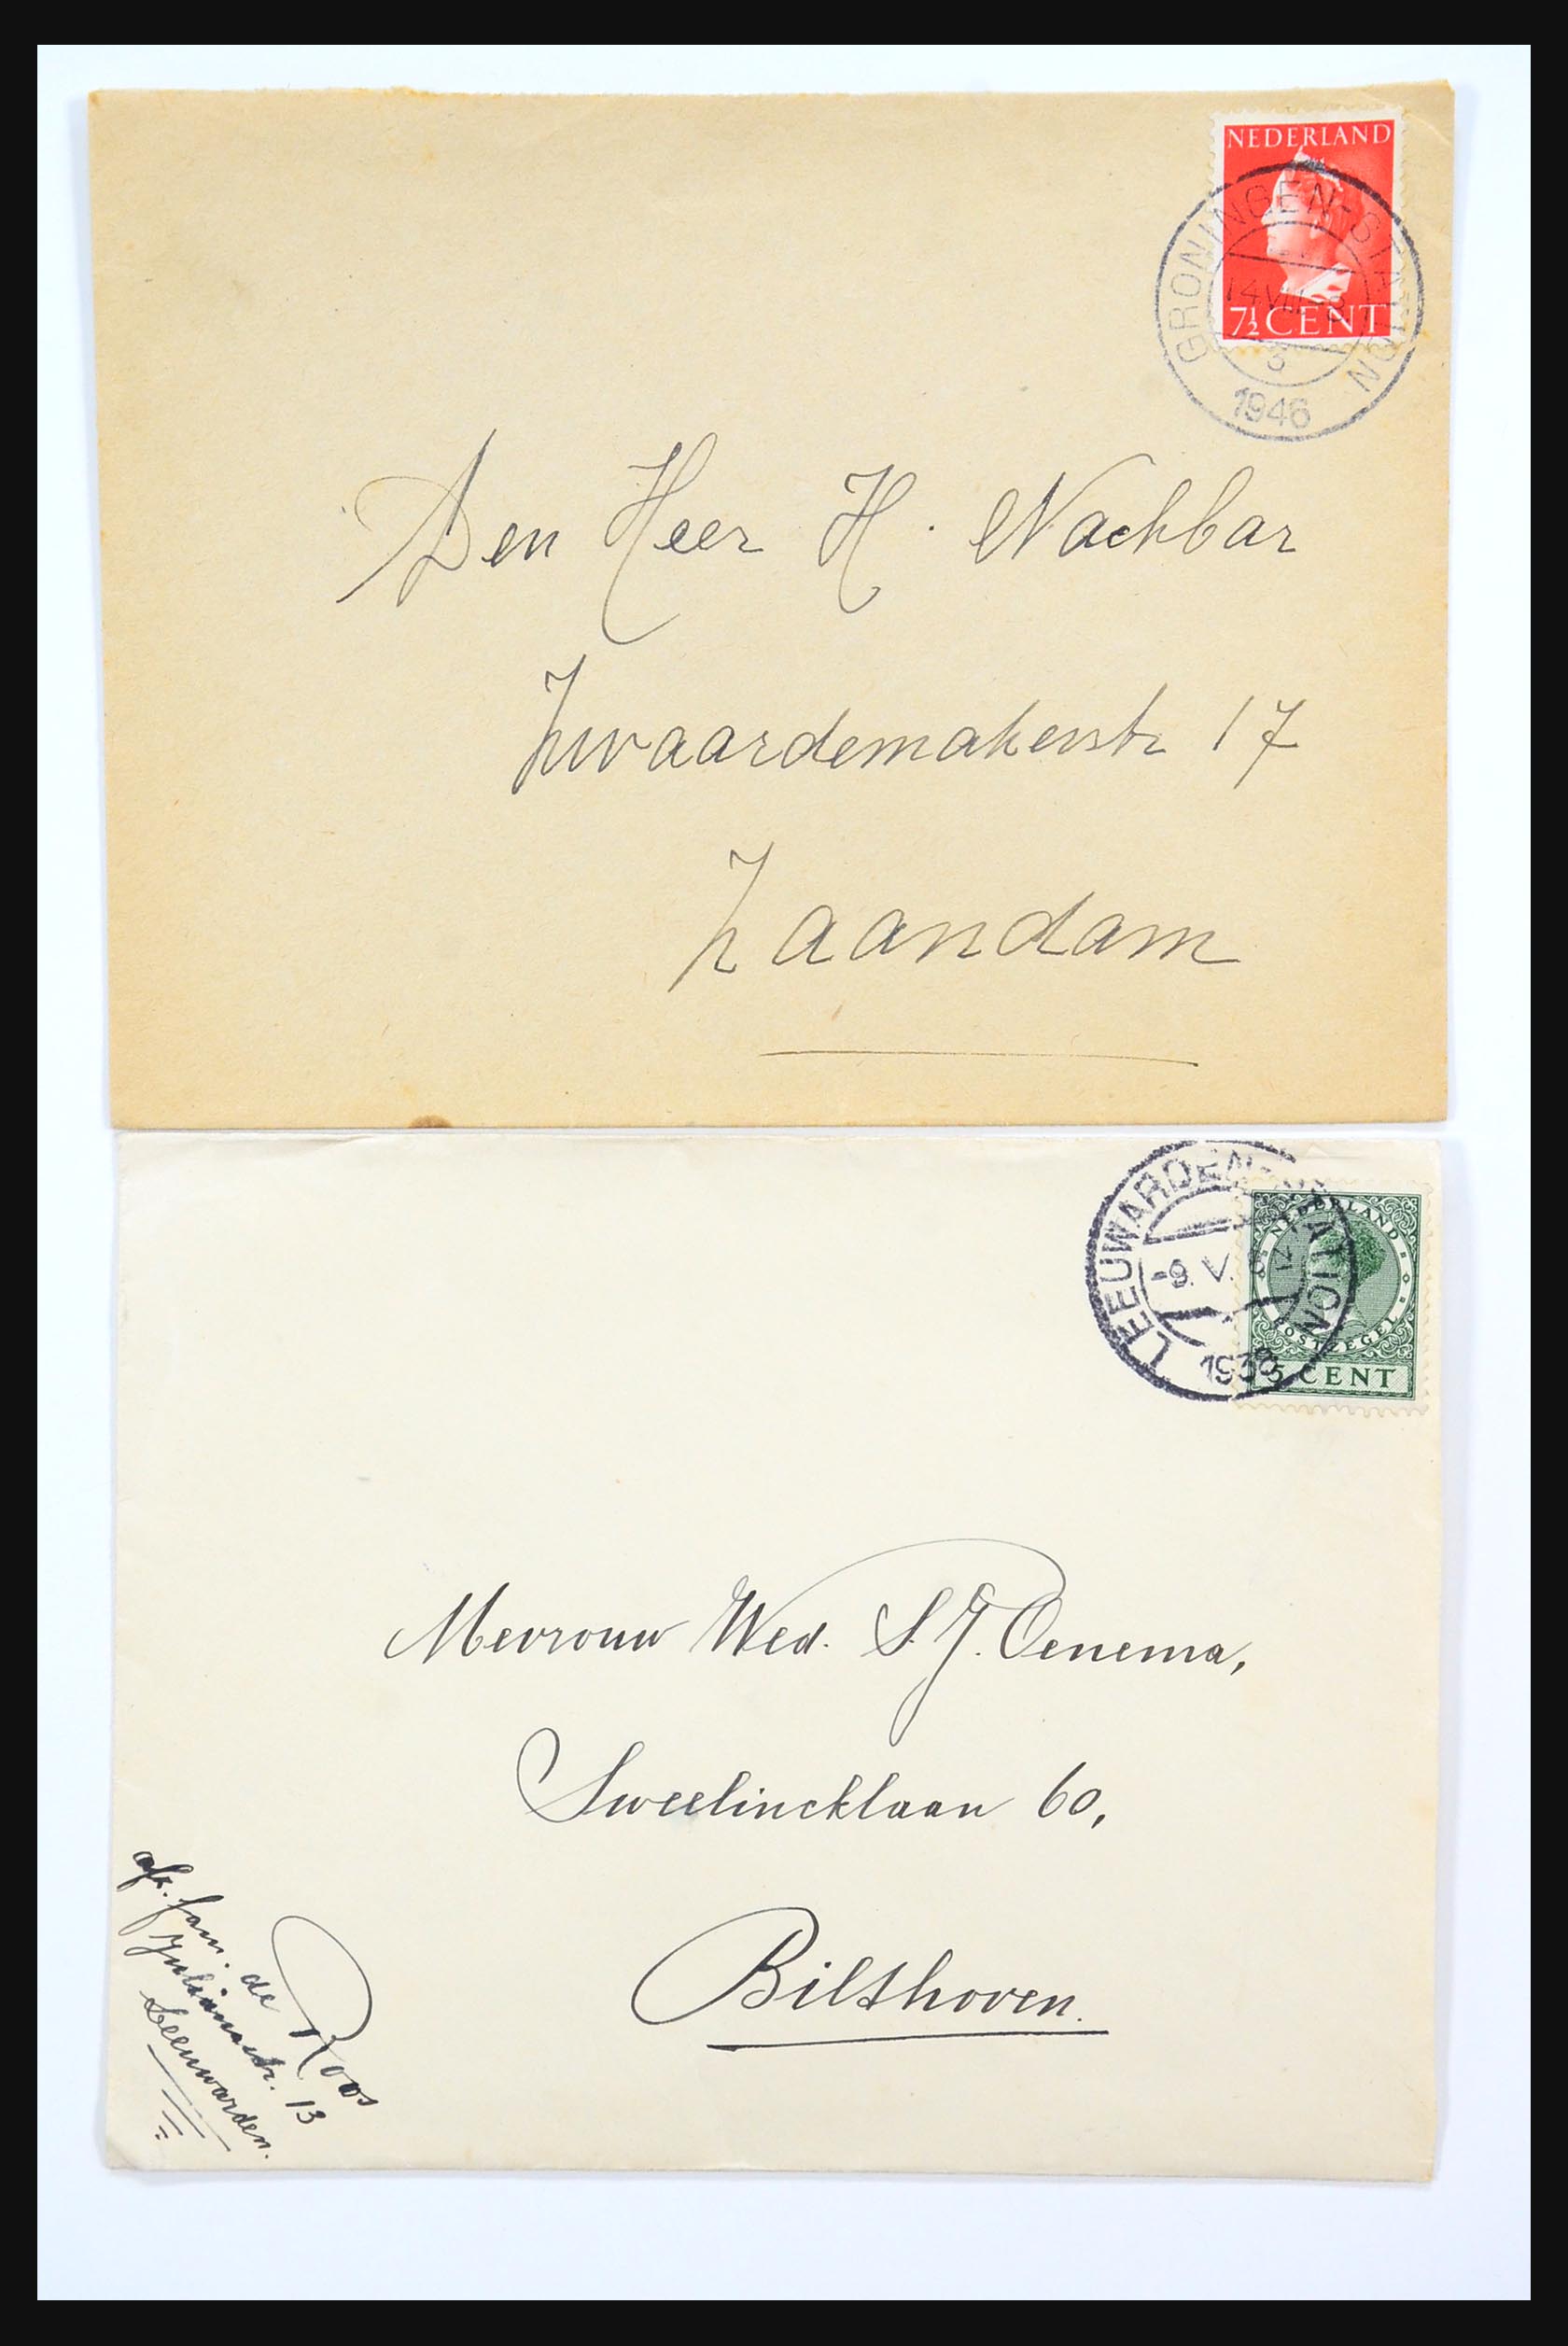 NEDERLAND
7½ CENT
GRONINGEN-STATION
14 VII
3
1946
Den Heer H. Nachbar
Zwaardemakerstr 17
Zaandam
LEEUWARDEN STATION
-9. V.
1938
NEDERLAND
POSTZEGEL
5 CENT
Mevrouw Wed. S. J. Oenema,
Sweelincklaan 60,
Bilthoven.
afz. fam. de Roos
Julianastr. 13
Leeuwarden.